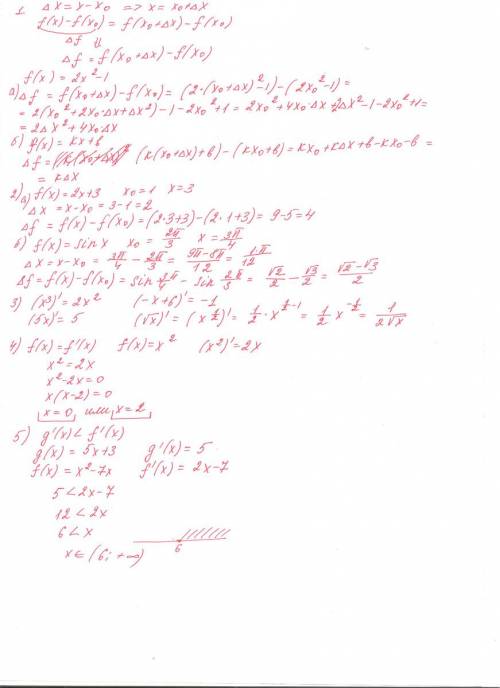 1 Δx = x-x₀ => x = x₀+Δx
f(x)-f(x₀) = f(x₀+Δx)-f(x₀)
Δf ⇓
Δf = f(x₀+Δx)-f(x₀)
f(x) = 2x²-1
а) Δf = f(x₀+Δx)-f(x₀) = (2·(x₀+Δx)²-1)-(2x₀²-1) =
= 2(x₀²+2x₀·Δx+Δx²)-1-2x₀²+1 = 2x₀²+4x₀·Δx+2Δx²-1-2x₀²+1=
= 2Δx²+4x₀Δx
б) f(x) = kx+в
Δf = (k(x₀+Δx)+в)-(kx₀+в) = kx₀+kΔx+в-kx₀-в =
= kΔx
2) а) f(x) = 2x+3 x₀=1 x=3
Δx = x-x₀ = 3-1=2
Δf = f(x)-f(x₀) = (2·3+3)-(2·1+3) = 9-5=4
б) f(x) = sin x x₀ = 2π/3 x = 3π/4
Δx = x-x₀ = 3π/4 - 2π/3 = 9π-8π/12 = 1·π/12
Δf = f(x)-f(x₀) = sin 3π/4 - sin 2π/3 = √2/2 - √3/2 = √2-√3/2
3) (x³)' = 2x² (-x+6)' = -1
(5x)' = 5 (√x)' = (x^½)' = 1/2 · x^(½-1) = 1/2 x^(-½) = 1/2√x
4) f(x) = f'(x) f(x) = x² (x²)' = 2x
x² = 2x
x²-2x=0
x(x-2)=0
x=0, или x=2
5) g'(x) < f'(x)
g(x) = 5x+3 g'(x) = 5
f(x) = x²-7x f'(x) = 2x-7
5 < 2x-7
12 < 2x
6 < x
6
x ∈ (6; +∞)